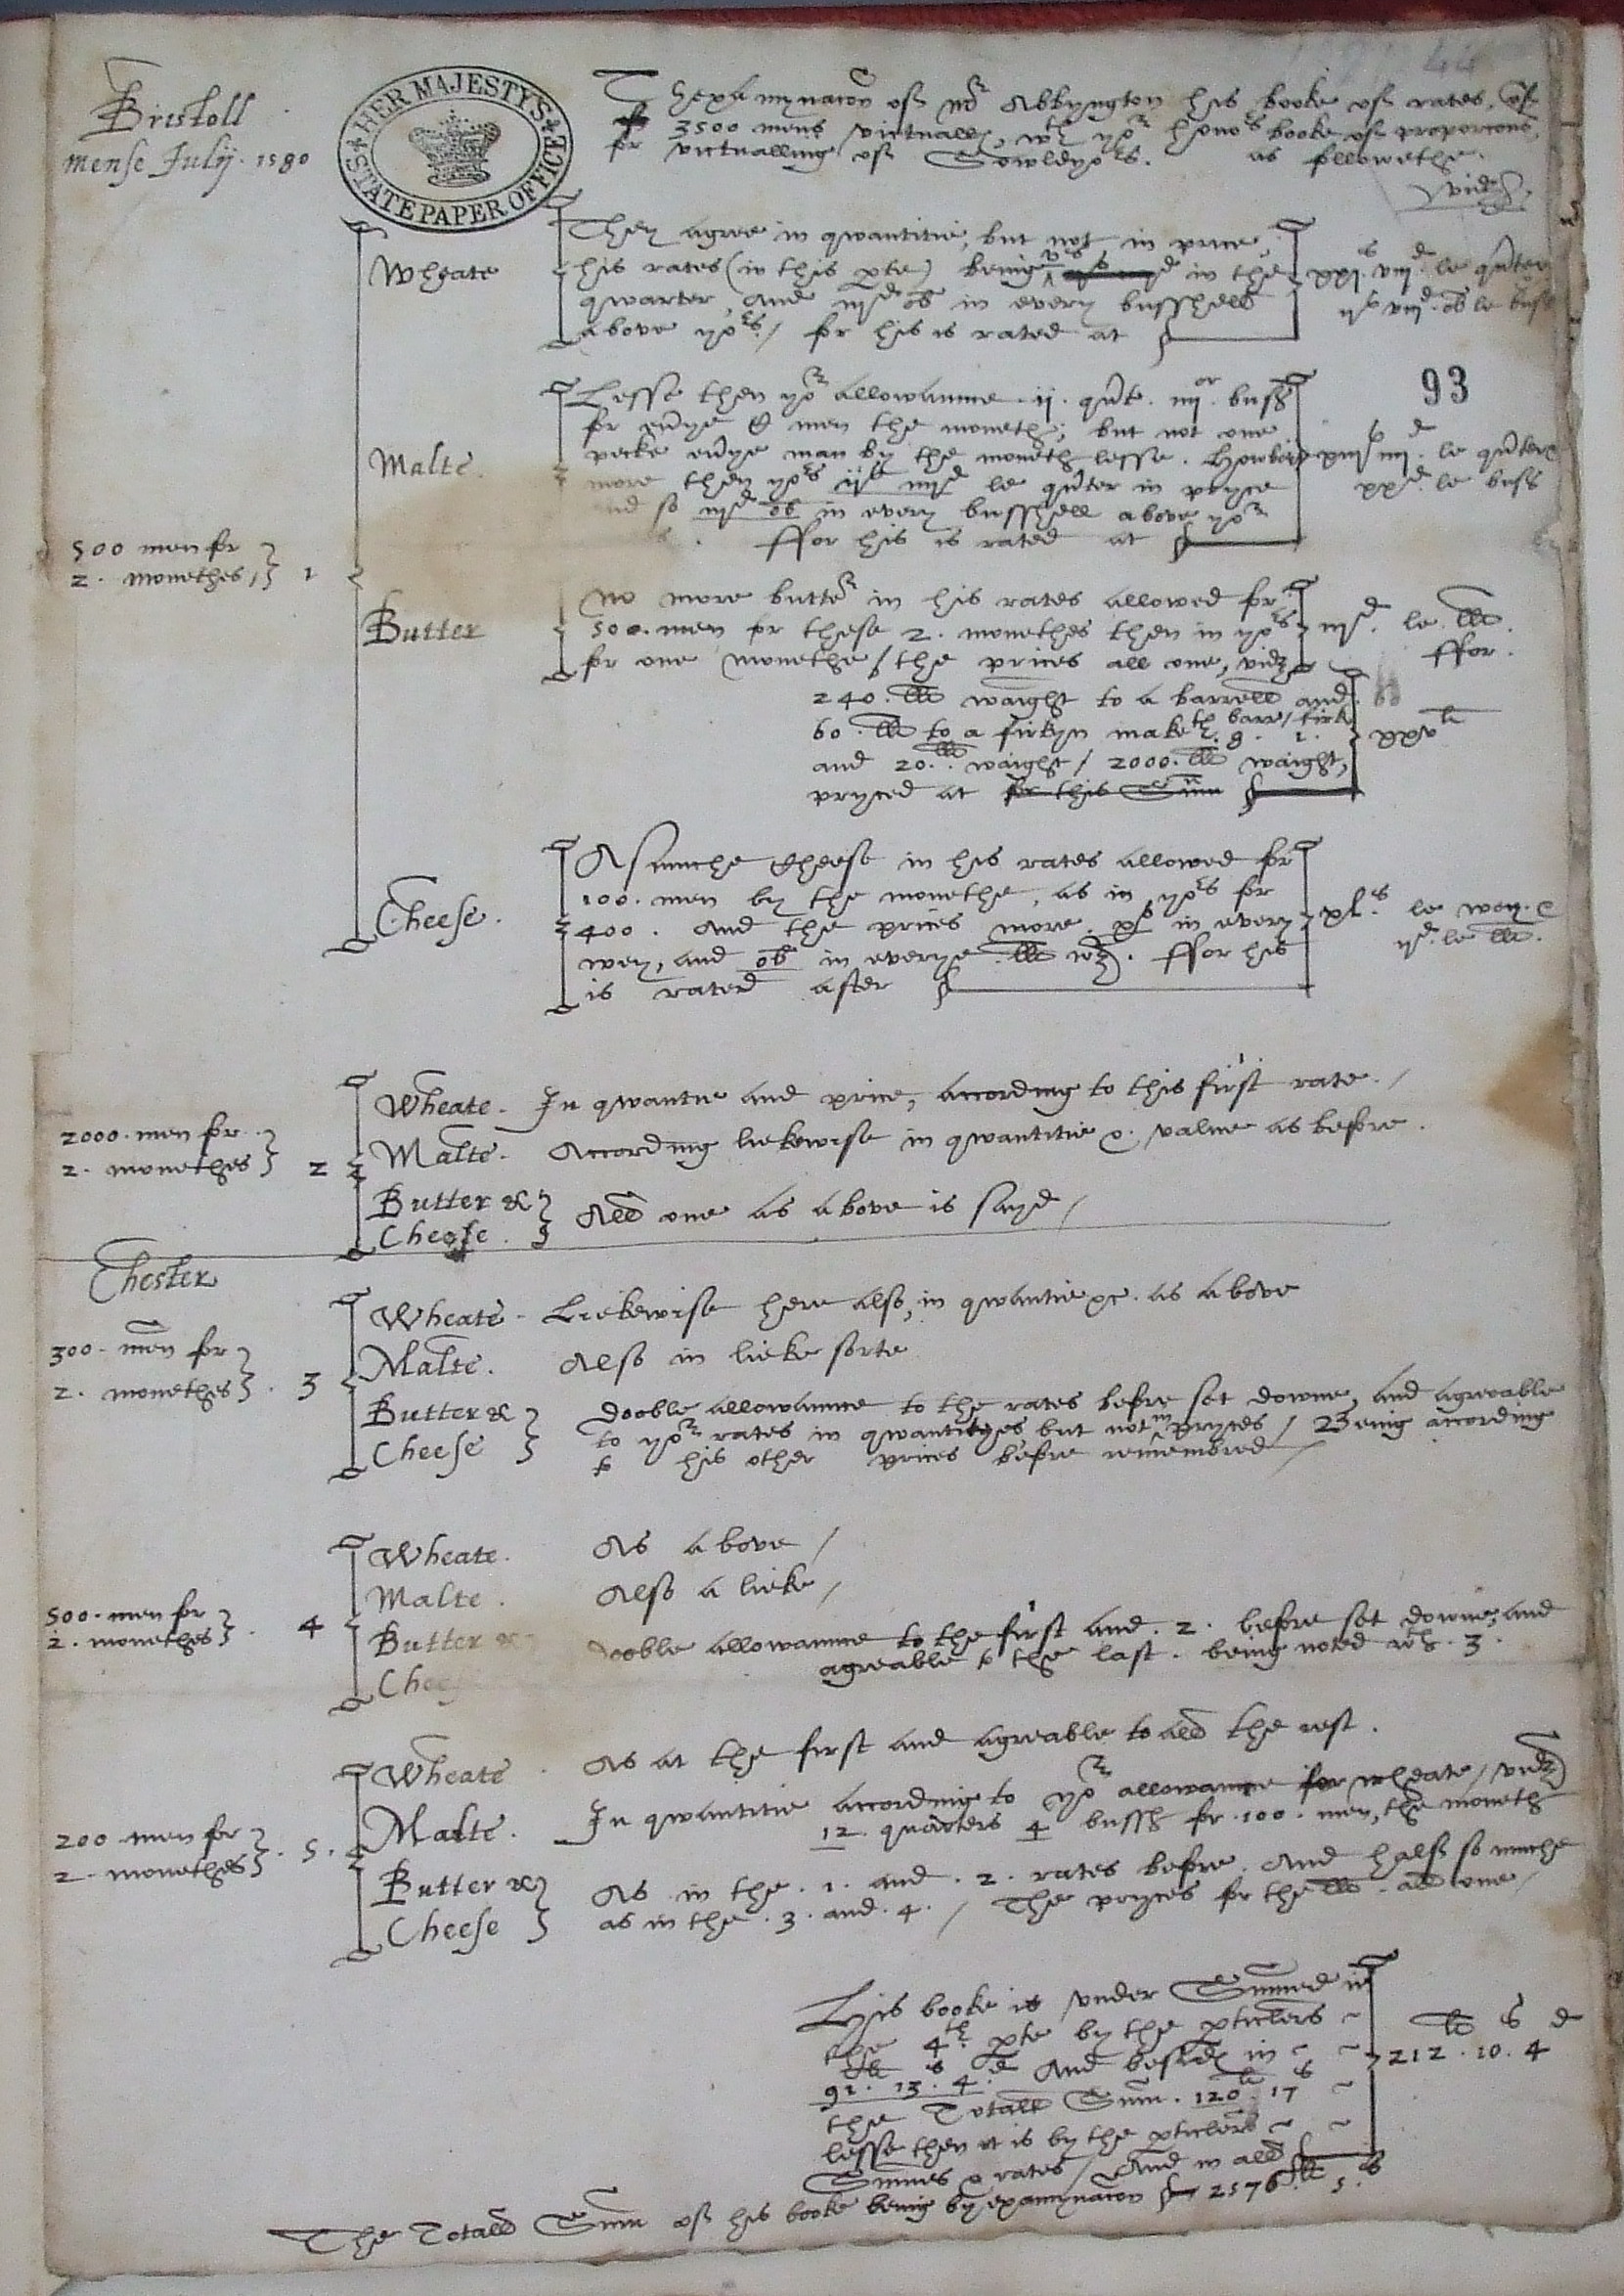 Bristoll
mense Julij . 1580
HER MAJESTY'S STATE PAPER OFFICE
Thexamynacon of Mr Abbyngton his booke of rates, of
3500 mens victuall, wth yor honors booke of proporcons,
for victualling of Sowldyors. as followethe.
vidz.
93
500 men for
2. monethes, } 1
Wheate
They agree in qwantitie, but not in price,
his rates (in this pte) being vs in the
qwarter, and iijd ob in every busshell
above yors / for his is rated at
xxjs viijd le qurter
ijs viijd ob le bush
Malte.
Lesse then yor allowaunce . ij . qurte . iiijor bush
for men the moneth; but not one
pecke everye man by the moneth lesse. Howbeit
more then yors ijs iiijd le qurter in pryce
and so iijd ob in every busshell above yor
. ffor his is rated at
xiijs iiijd . le qurter
xxd . le bush
Butter
No more butter in his rates allowed for
500 . men for these 2 . monethes then in yors
for one monethe / the prices all one, vidz
iijd . le lb .
ffor .
240 . lb waight to a barrell and
60 . lb to a firkyn maketh barr / firk 8 . 1 .
and 20 . lb waight / 2000 . lb waight,
pryced at for this Sum
xxvli
Cheese .
Asmuche Cheese in his rates allowed for
100 . men by the monethe, as in yors for
400 . And the prices more . xs in every
wey, and ob in everye lb . ffor his
is rated after
xls . le wey . &
ijd . le lb .
2000 . men for
2 . monethes } 2
Wheate . In qwantie and price, according to this first rate . /
Malte . According liekewise in qwantitie & . value as before .
Butter &
Cheese . } All one as above is sayd /
Chester
300 . men for
2 . monethes } . 3
Wheate . Liekewise here also, in qwantie &c . as above
Malte . Also in lieke sorte
Butter &
Cheese }
Dooble allowaunce to the rates before set downe, and agreeable
to yor rates in qwantityes but not in pryces / Being according
to his other prices before remembred /
500 . men for
2 . monethes } . 4
Wheate . As above /
Malte . Also a lieke /
Butter &
Cheese
dooble allowaunce to the first and . 2 . before set downe, and
agreable to the last . being noted wth . 3 .
200 men for
2 . monethes } . 5 .
Wheate . As at the first and agreable to all the rest .
Malte . In qwantitie according to yor allowance for wheate / vidz
12 . quarters 4 bussh for . 100 . men, the moneth
Butter &
Cheese }
As in the . 1 . and . 2 . rates before . And half so muche
as in the . 3 . and . 4 . / The pryces for the lb . all one /
His booke is under Summed in
the 4th pte by the pticlers
li s d
91 . 13 . 4 . And besides in
the Totall Sum . 120li 17s
lesse then it is by the pticlers
Summes & rates / And in all
li s d
212 . 10 . 4
The Totall Sum of his booke being by examynacon 2576li . 5s